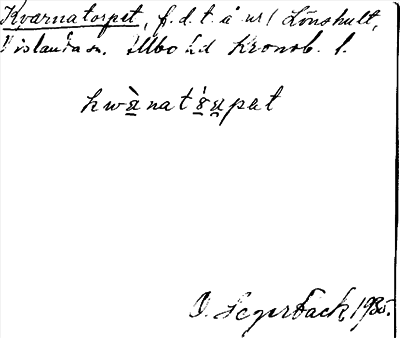 Kvarnatorpet, f.d.t. å nr 1 Lönshult,
Vislanda sn. Allbo hd Kronob. l.
kwànatórpet
O. Segerback 1935.